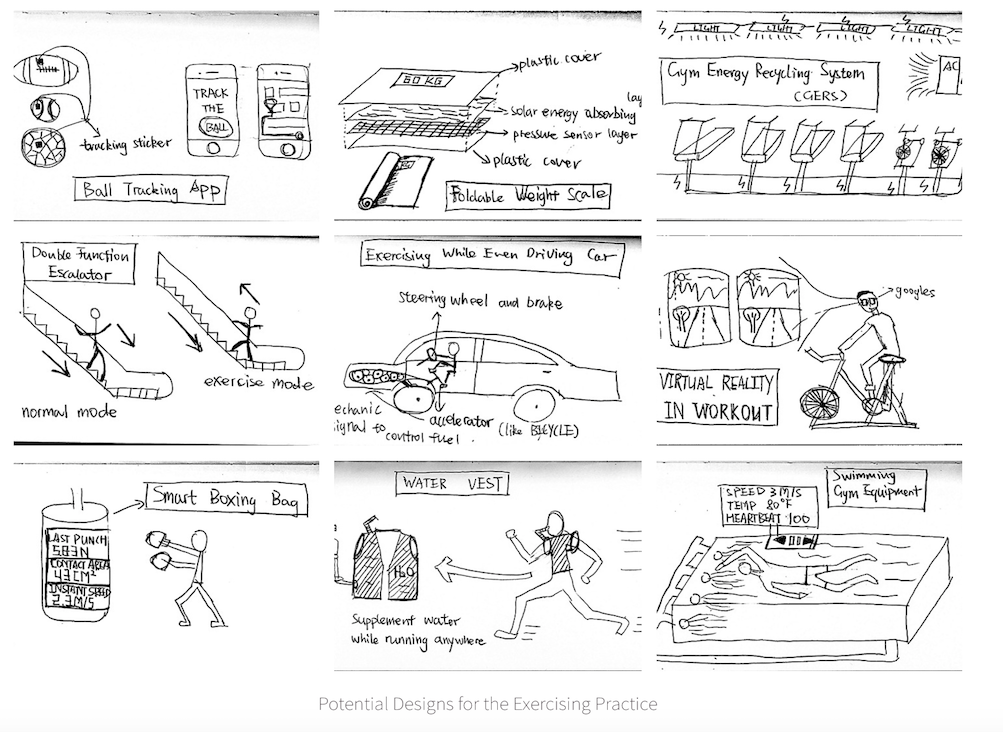 TRACK
THE
BALL
tracking sticker
Ball Tracking App
60 KG
plastic cover
lay
solar energy absorbing
pressure sensor layer
plastic cover
Foldable Weight Scale
LIGHT LIGHT LIGHT LIGHT
Gym Energy Recycling System
(GERS)
AC
Double Function
Escalator
normal mode
exercise mode
Exercising While Even Driving Car
Steering wheel and brake
echanic
ignal to
control fuel
accelerator
(like BICYCLE)
googles
VIRTUAL REALITY
IN WORKOUT
Smart Boxing Bag
LAST PUNCH
583N
CONTACT AREA
43CM²
INSTANT SPEED
2.3M/S
WATER VEST
H2O
Supplement water
while running anywhere
Swimming
Gym Equipment
SPEED 3M/S
TEMP 80°F
HEARTBEAT 100
Potential Designs for the Exercising Practice